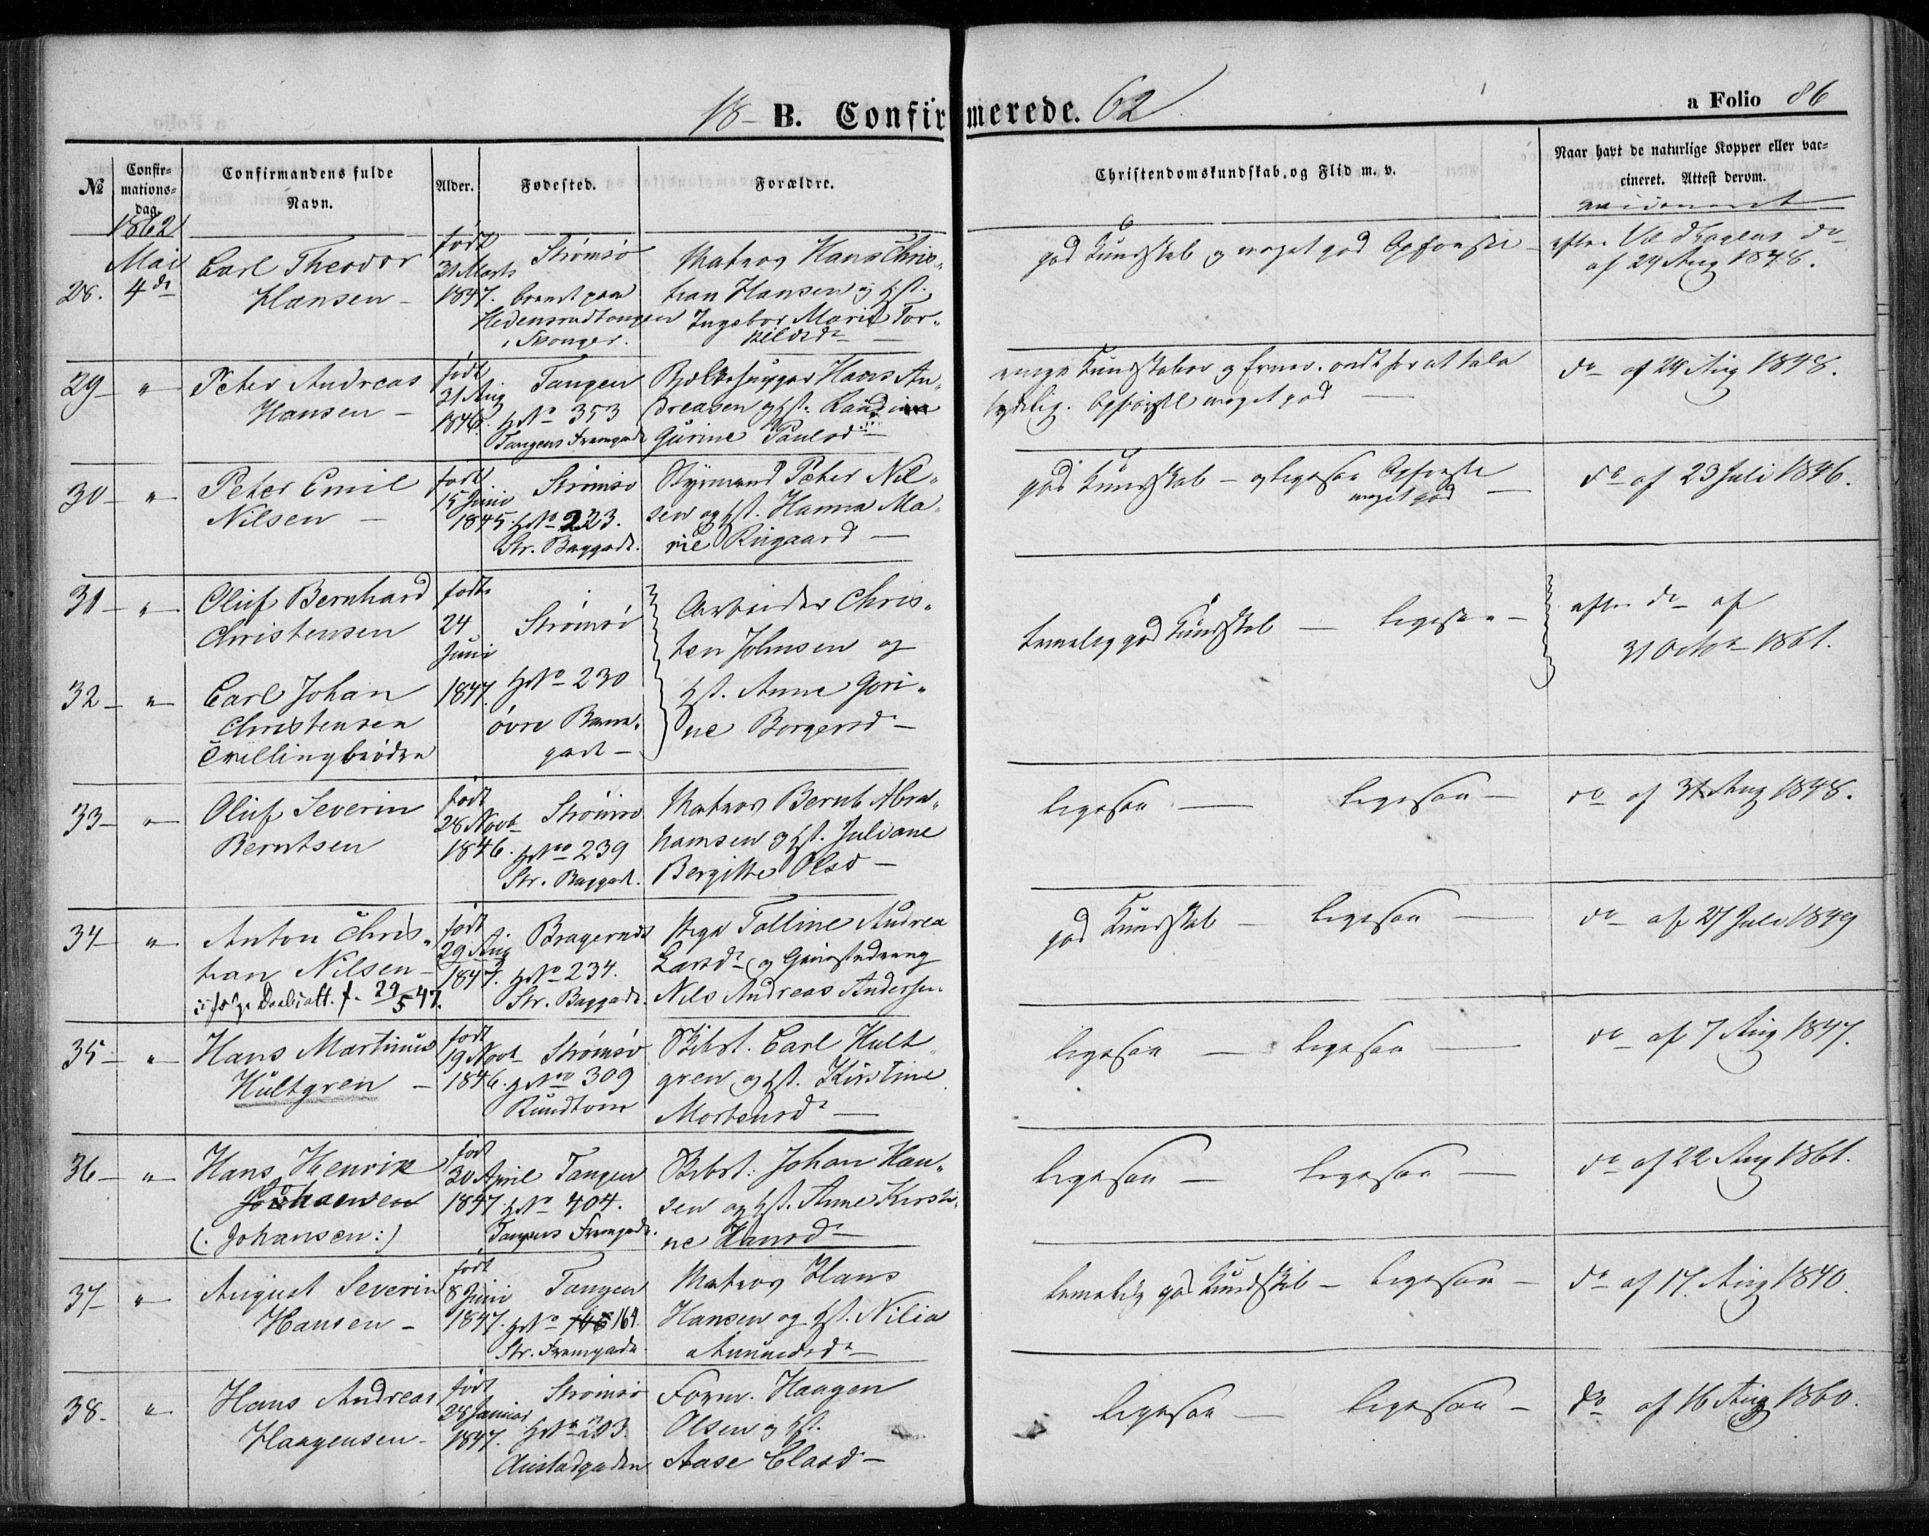 18- B. Confirmerede. 62
a Folio 86
№
Confir-
mations-
dag.
Confirmandens fulde
Navn.
Alder.
Fødested.
Forældre.
Christendomskundskab, og Flid m. v.
Naar havt de naturlige Kopper eller vac-
cineret. Attest derom.
1862
Mai
28. 4de
Carl Theodor
Hansen -
født
31 Marts
1847.
Strømsø
boende paa
i Skouger.
Matros Hans Chris-
tian Hansen og Hst.
Ingebor Marie Tor-
kildsdr
god Kundskab og meget god Opførsel -
af 29 Aug 1848.
29 - "
Peter Andreas
Hansen -
født
21 Aug
1846.
Tangen
H No 353
Tangens Fremgade
Hans An-
dreasen og Hst.
Gurine Paulsd -
tydelig. Opførsel meget god -
do af 29 Aug 1848.
30 - "
Peter Emil
Nilsen -
født
15 Junio
1845.
Strømsø
H No 223.
Str. Baggade.
Styrmand Peter Nil-
sen og Hst. Hanna Ma-
rie Riigaard -
god Kundskab - og ligesaa Opførsel
meget god -
do af 23 Juli 1846.
31 - "
Oluf Bernhard
Christensen
32 - "
Carl Johan
Christensen
Tvillingbrødre
født
24
Juni
1847.
Strømsø
H No 230
øvre
gade -
Arbeider Chris-
ten Johnsen og
Hst. Anne Gori-
ne Borgersd -
temelig god Kundskab - ligesaa -
efter do af
31 Octbr 1861.
33 - "
Oluf Severin
Berntsen
født
28 Novb
1846.
Strømsø
H No 239
Str. Baggade.
Matros Bernt Abra-
hamsen og Hst. Juliane
Bergitte Olsd -
ligesaa - ligesaa -
do af 31 Aug 1848.
34 - "
Anton Chris-
tian Nilsen -
f. 29/5 47.
født
29 Aug
1847.
Bragernes
H No 234.
Str. Baggade.
Pige Talline Andrea
Larsdr og
Nils Andreas Andersen
god Kundskab - ligesaa -
do af 27 Juli 1849
35 - "
Hans Martinus
Hultgren -
født
19 Novb
1846.
Strømsø
H No 309
Rundtom
Bdst. Carl Hult
gren og Hst. Kirstine
Mortensdr -
ligesaa - ligesaa -
do af 7 Aug 1847.
36 - "
Hans Henrik
(: Johansen :)
født
30 April
1847
Tangen
H No 404.
Tangens Fremgade.
Bdst: Johan Han-
sen og Hst. Anne Kirsti-
ne Hansdr -
ligesaa - ligesaa -
do af 22 Aug 1861.
37 - "
August Severin
Hansen -
født
8 Junio
1847.
Tangen
H No 164.
Str. Fremgade.
Matros Hans
Hansen og Hst. Nilia
Amundsdr -
temelig god Kundskab - ligesaa -
do af 17. Aug 1840.
38. "
Hans Andreas
Haagensen -
født
28 Januar
1847.
Strømsø
H No 203.
Austadgaden
Form. Haagen
Olsen og Hst.
Aase Clasd -
ligesaa - ligesaa -
do af 16 Aug 1860.